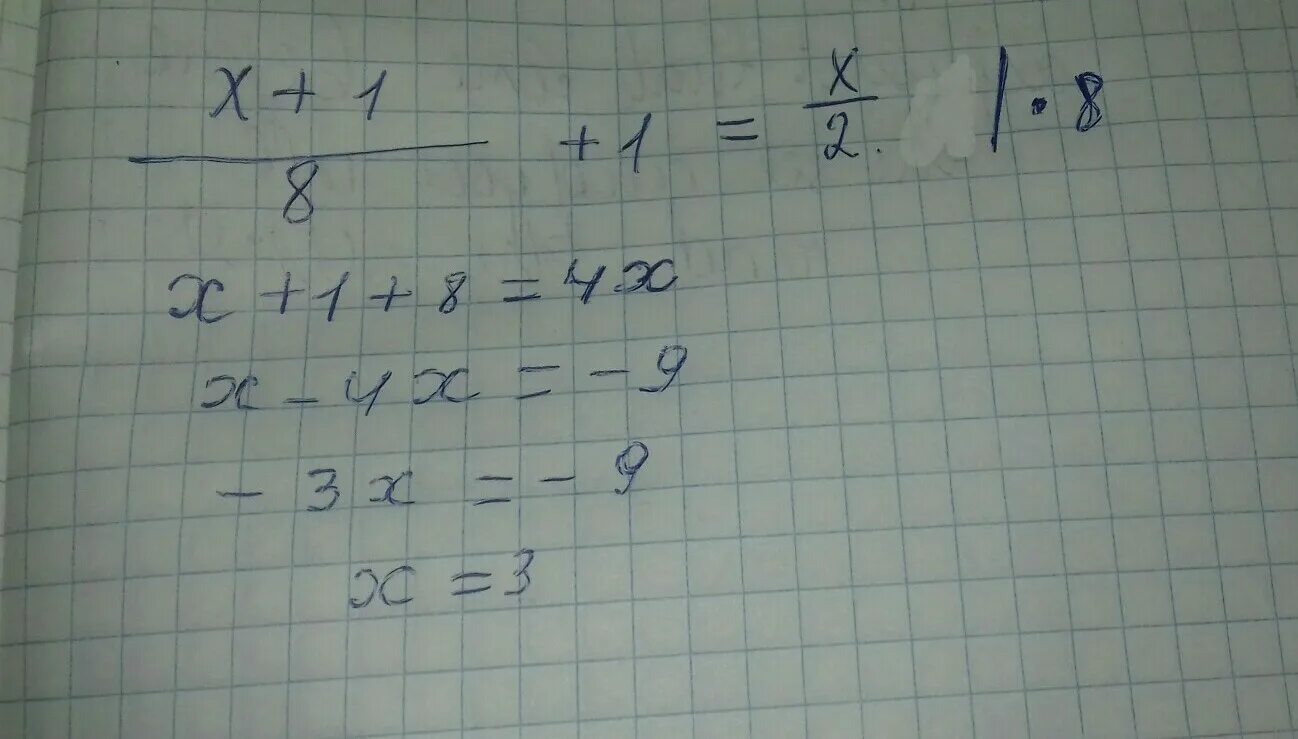 (x + 1)/8 + 1 = x/2 | · 8
x + 1 + 8 = 4x
x - 4x = - 9
- 3x = - 9
x = 3